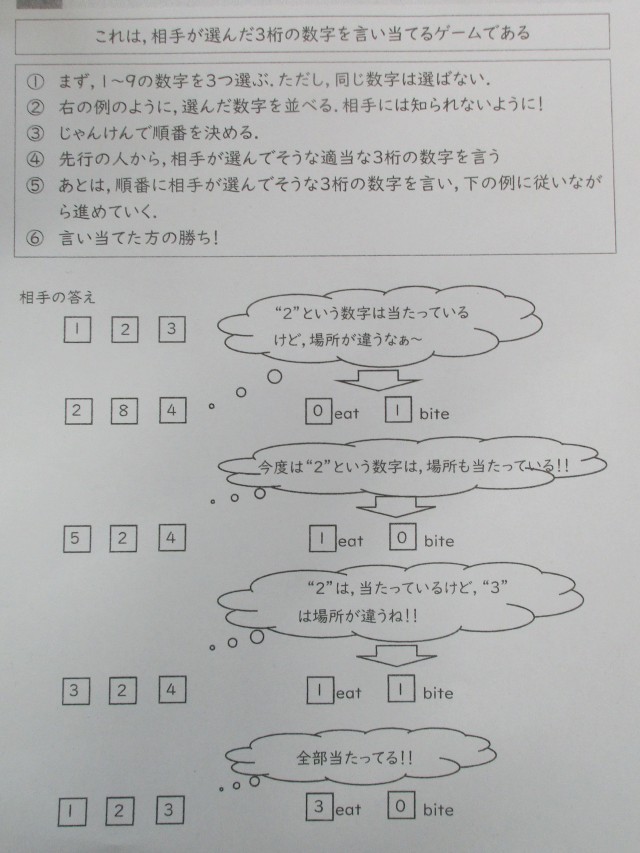 これは,相手が選んだ3桁の数字を言い当てるゲームである
① まず,1～9の数字を3つ選ぶ.ただし,同じ数字は選ばない.
② 右の例のように,選んだ数字を並べる.相手には知られないように!
③ じゃんけんで順番を決める.
④ 先行の人から,相手が選んでそうな適当な3桁の数字を言う
⑤ あとは,順番に相手が選んでそうな3桁の数字を言い,下の例に従いなが
ら進めていく.
⑥ 言い当てた方の勝ち!
相手の答え
1 2 3
“2”という数字は当たっている
けど,場所が違うなぁ～
2 8 4 0 eat 1 bite
今度は“2”という数字は,場所も当たっている!!
5 2 4 1 eat 0 bite
“2”は,当たっているけど,“3”
は場所が違うね!!
3 2 4 1 eat 1 bite
全部当たってる!!
1 2 3 3 eat 0 bite